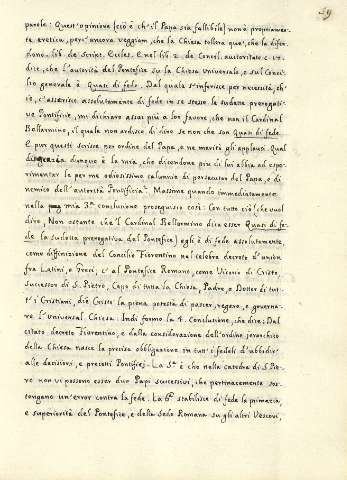 59
parole: Quest'opinione (cioè ch'il Papa sia fallibile) non è propriamen-
te eretica, perc'ancora veggiam, che la Chiesa tollera que', che la difen-
dono. lib. de Script. Eccles. E nel lib. 2. de Concil. autoritate c. 17.
dice, che l'autorità del Pontefice su la Chiesa Universale, e sul Conci-
lio generale è Quasi di fede. Dal quale s'inferisce per necessità, ch'
io, c'asserisco assolutamente di fede in se stesse le sudette prerogati-
ve Pontificie, mi dichiaro assai più a lor favore, che non il Cardinal
Bellarmino, il quale non ardisce di dire se non che son Quasi di fede.
E pur questi scrisse per ordine del Papa, e ne meritò gli applausi. Qual
disgrazia dunque è la mia, che dicendone più di lui abbia ad espe-
rimentar le per me odiosissime calunnie di persecutor del Papa, e di
nemico dell'autorità Pontificia? Massime quando immediatamente
nella mia 3ª conclusione proseguisco così: Con tutto ciò (che vuol
dire, Non ostante che 'l Cardinal Bellarmino dica esser Quasi di fe-
de la sudetta prerogativa del Pontefice) egli è di fede assolutamente,
come diffinizione del Concilio Fiorentino nel celebre decreto d'unione
fra Latini, e Greci, c'al Pontefice Romano, come Vicario di Cristo,
Successor di S. Pietro, Capo di tutta la Chiesa, Padre, e Dottor di tut-
t'i Cristiani, diè Cristo la piena potestà di pascer, regere, e governa-
re l'Universal Chiesa. Indi formo la 4. Conclusione, che dice: Dal
citato decreto Fiorentino, e dalla considerazione dell'ordine jerarchico
della Chiesa nasce la precisa obbligazione in tutt'i fedeli d'ubbidir'
alle decisioni, e precetti Pontificj. La 5ª è che nella catedra di S. Pie-
ro non vi possono esser due Papi successivi, che pertinacemente sos-
tengano un'error contra la fede. La 6ª stabilisce di fede la primazia,
e superiorità del Pontefice, e della Sede Romana su gli altri Vescovi,